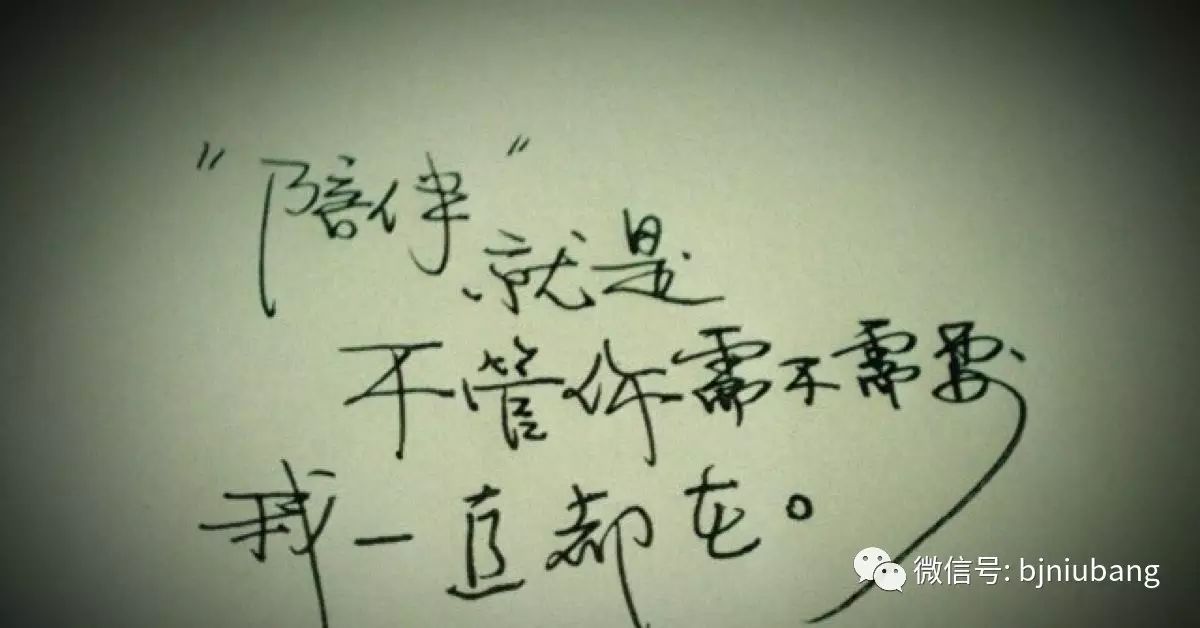 "陪伴"
就是
不管你需不需要
我一直都在。
微信号: bjniubang